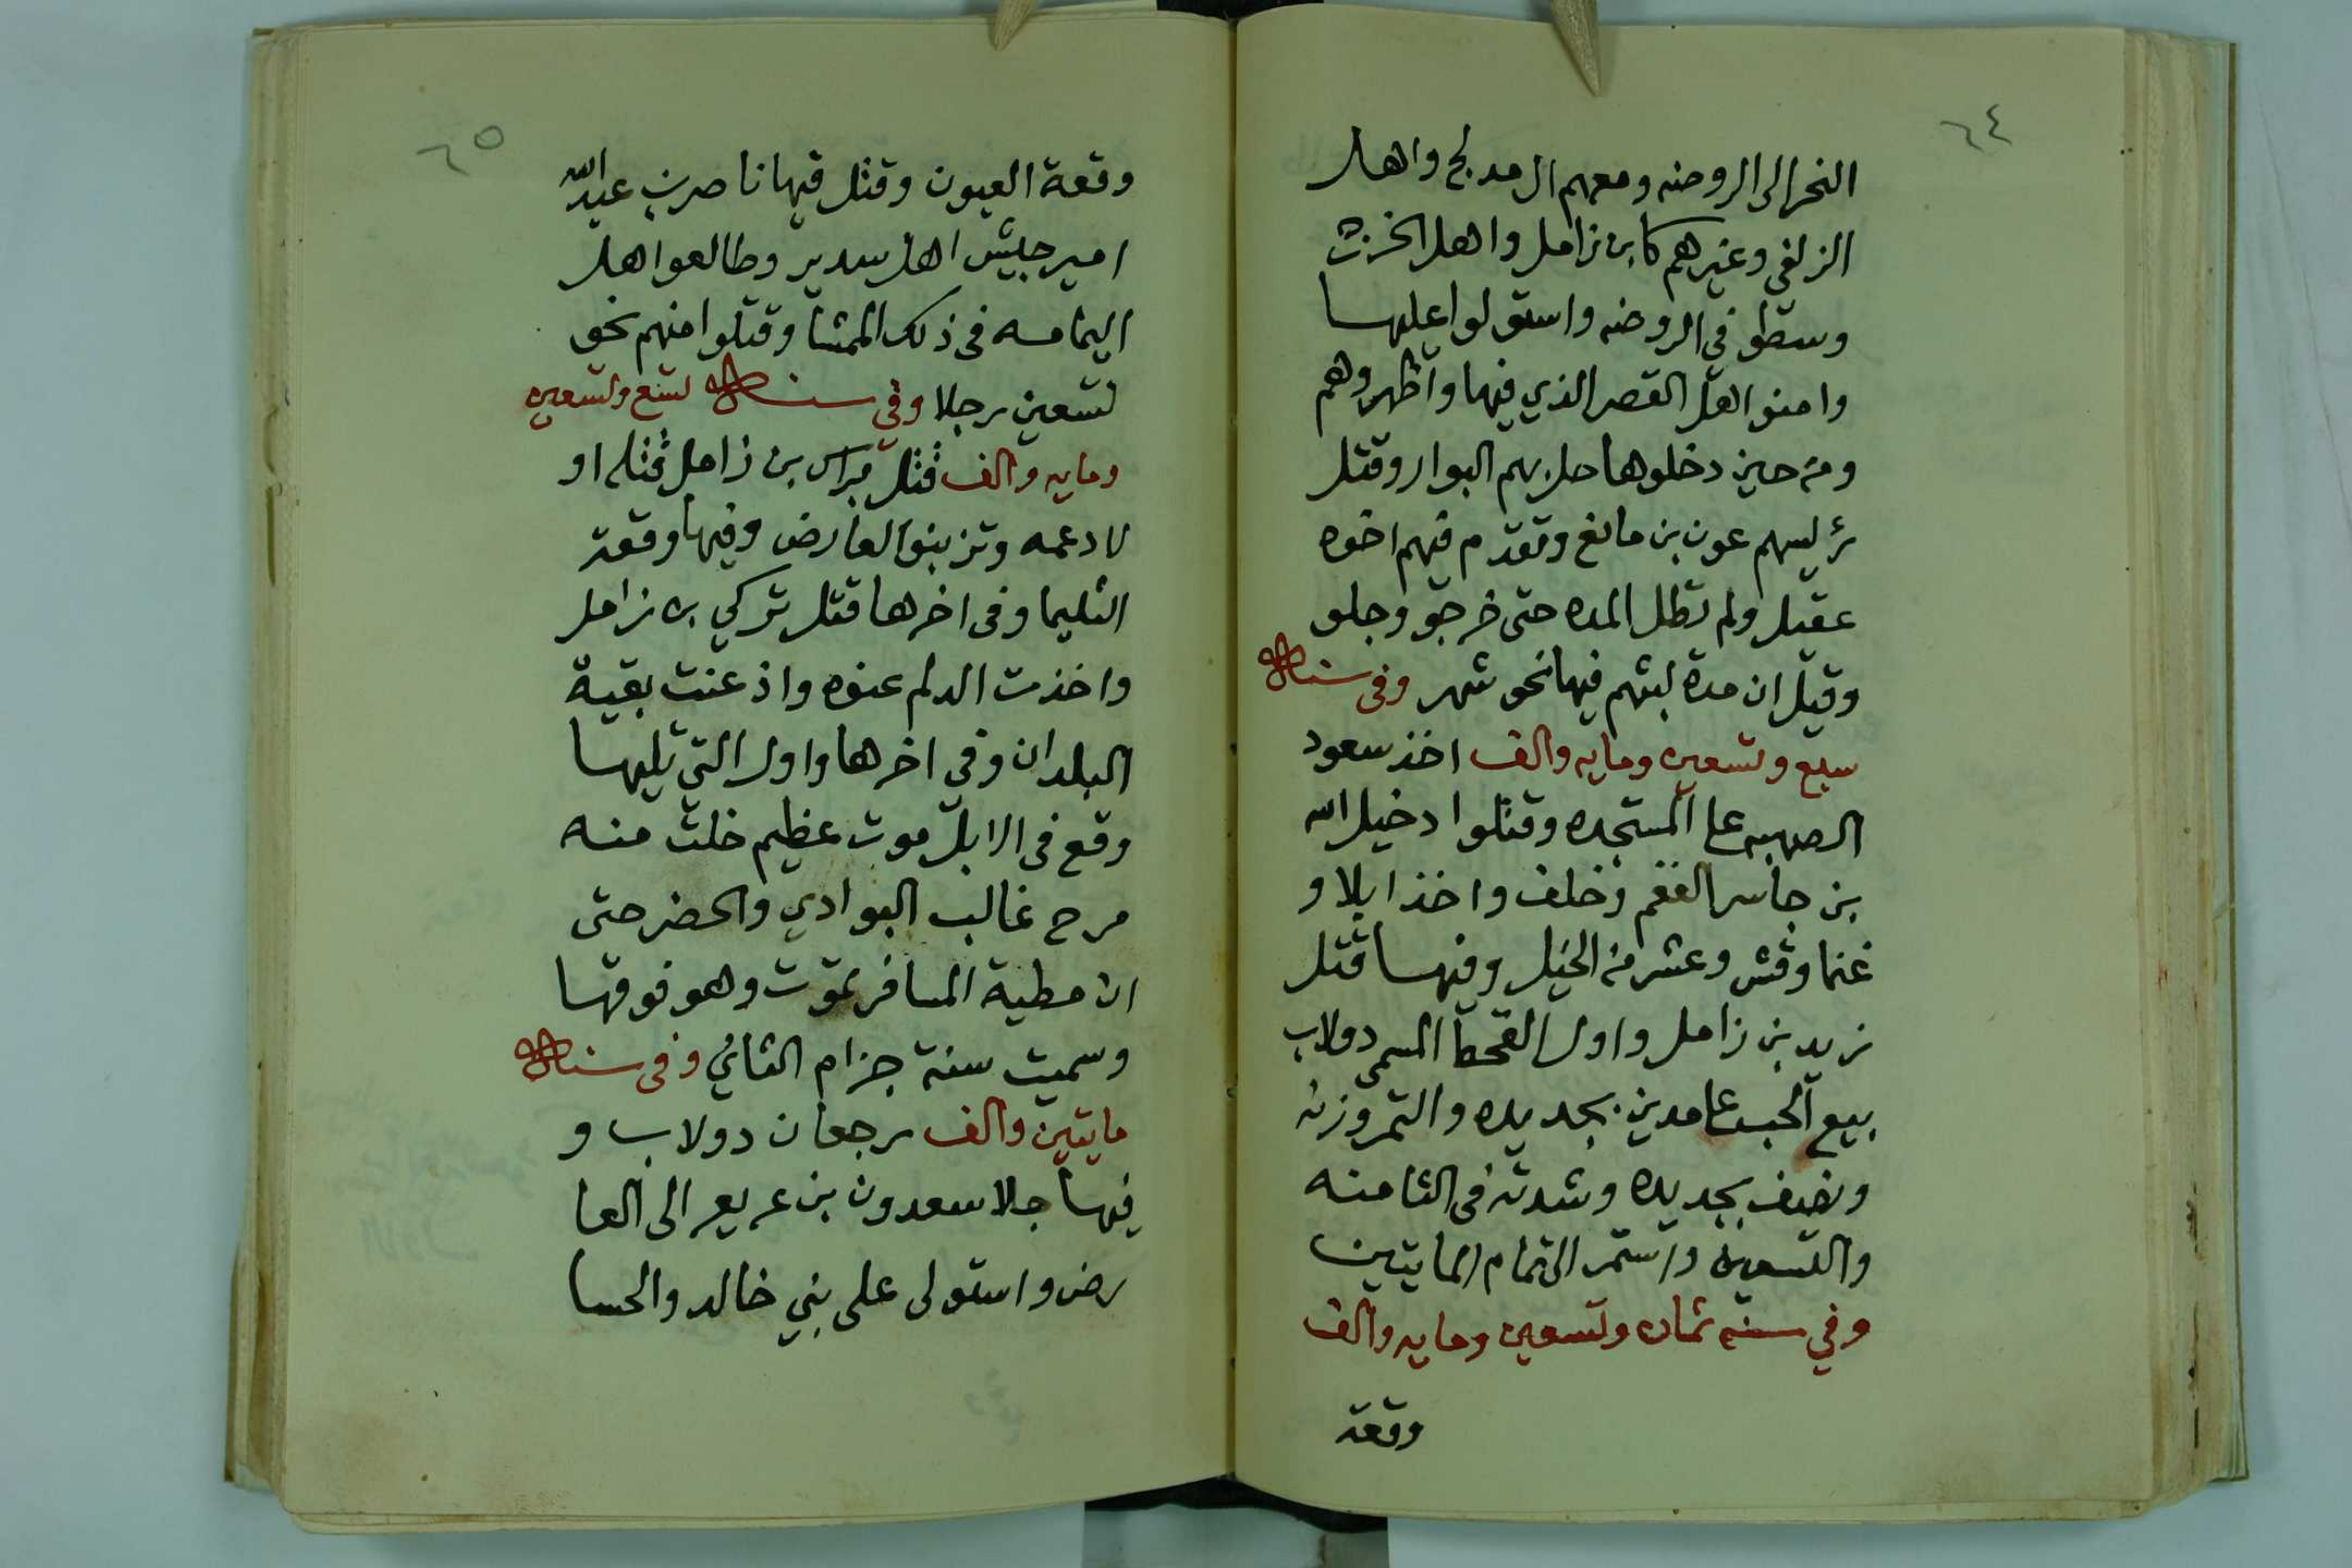 ٦٤
النحر الى الروضه ومعهم ال مدلج واهل
الزلفي وغيرهم كابن زامل واهل الخرج
وسطو في الروضه واستولوا عليها
وامنوا اهل القصر الذي فيها واظهروهم
ومن حين دخلوها حل بهم البوار وقتل
رئيسهم عون بن مانع وتقدم فيهم اخوه
عقيل ولم تطل المده حتى خرجو وجلو
وقيل ان مدة لبثهم فيها نحو شهر وفي سنة
سبع وتسعين ومايه والف اخذ سعود
الصهبه على المستجده وقتلوا دخيل الله
بن جاسر الفغم وخلف واخذ ابلا و
غنما وقش وعشر من الخيل وفيها قتل
زيد بن زامل واول القحط المسمى دولاب
بيع الحب على مدين بجديده والتمر وزنه
ونصيف بجديده وشدته في الثامنه
والتسعين واستمر الى تمام المايتين
وفي سنه ثمان وتسعين ومايه والف
وقعة
٦٥
وقعة العيون وقتل فيها ناصر بن عبد الله
امير جيش اهل سدير وطالعوا اهل
اليمامه في ذلك الممشا وقتلوا منهم نحو
تسعين رجلا وفي سنة تسع وتسعين
ومايه والف قتل براك بن زامل قتله او
لاد عمه وتزبنو العارض وفيها وقعة
الثليما وفي اخرها قتل تركي بن زامل
واخذت الدلم عنوه واذعنت بقية
البلدان وفي اخرها واول التي تليها
وقع في الابل موت عظيم خلت منه
مرح غالب البوادي والحضر حتى
ان مطية المسافر تموت وهو فوقها
وسميت سنة جزام الثاني وفي سنة
مايتين والف رجعان دولاب و
فيها جلا سعدون بن عريعر الى العا
رض واستولى على بني خالد والحسا